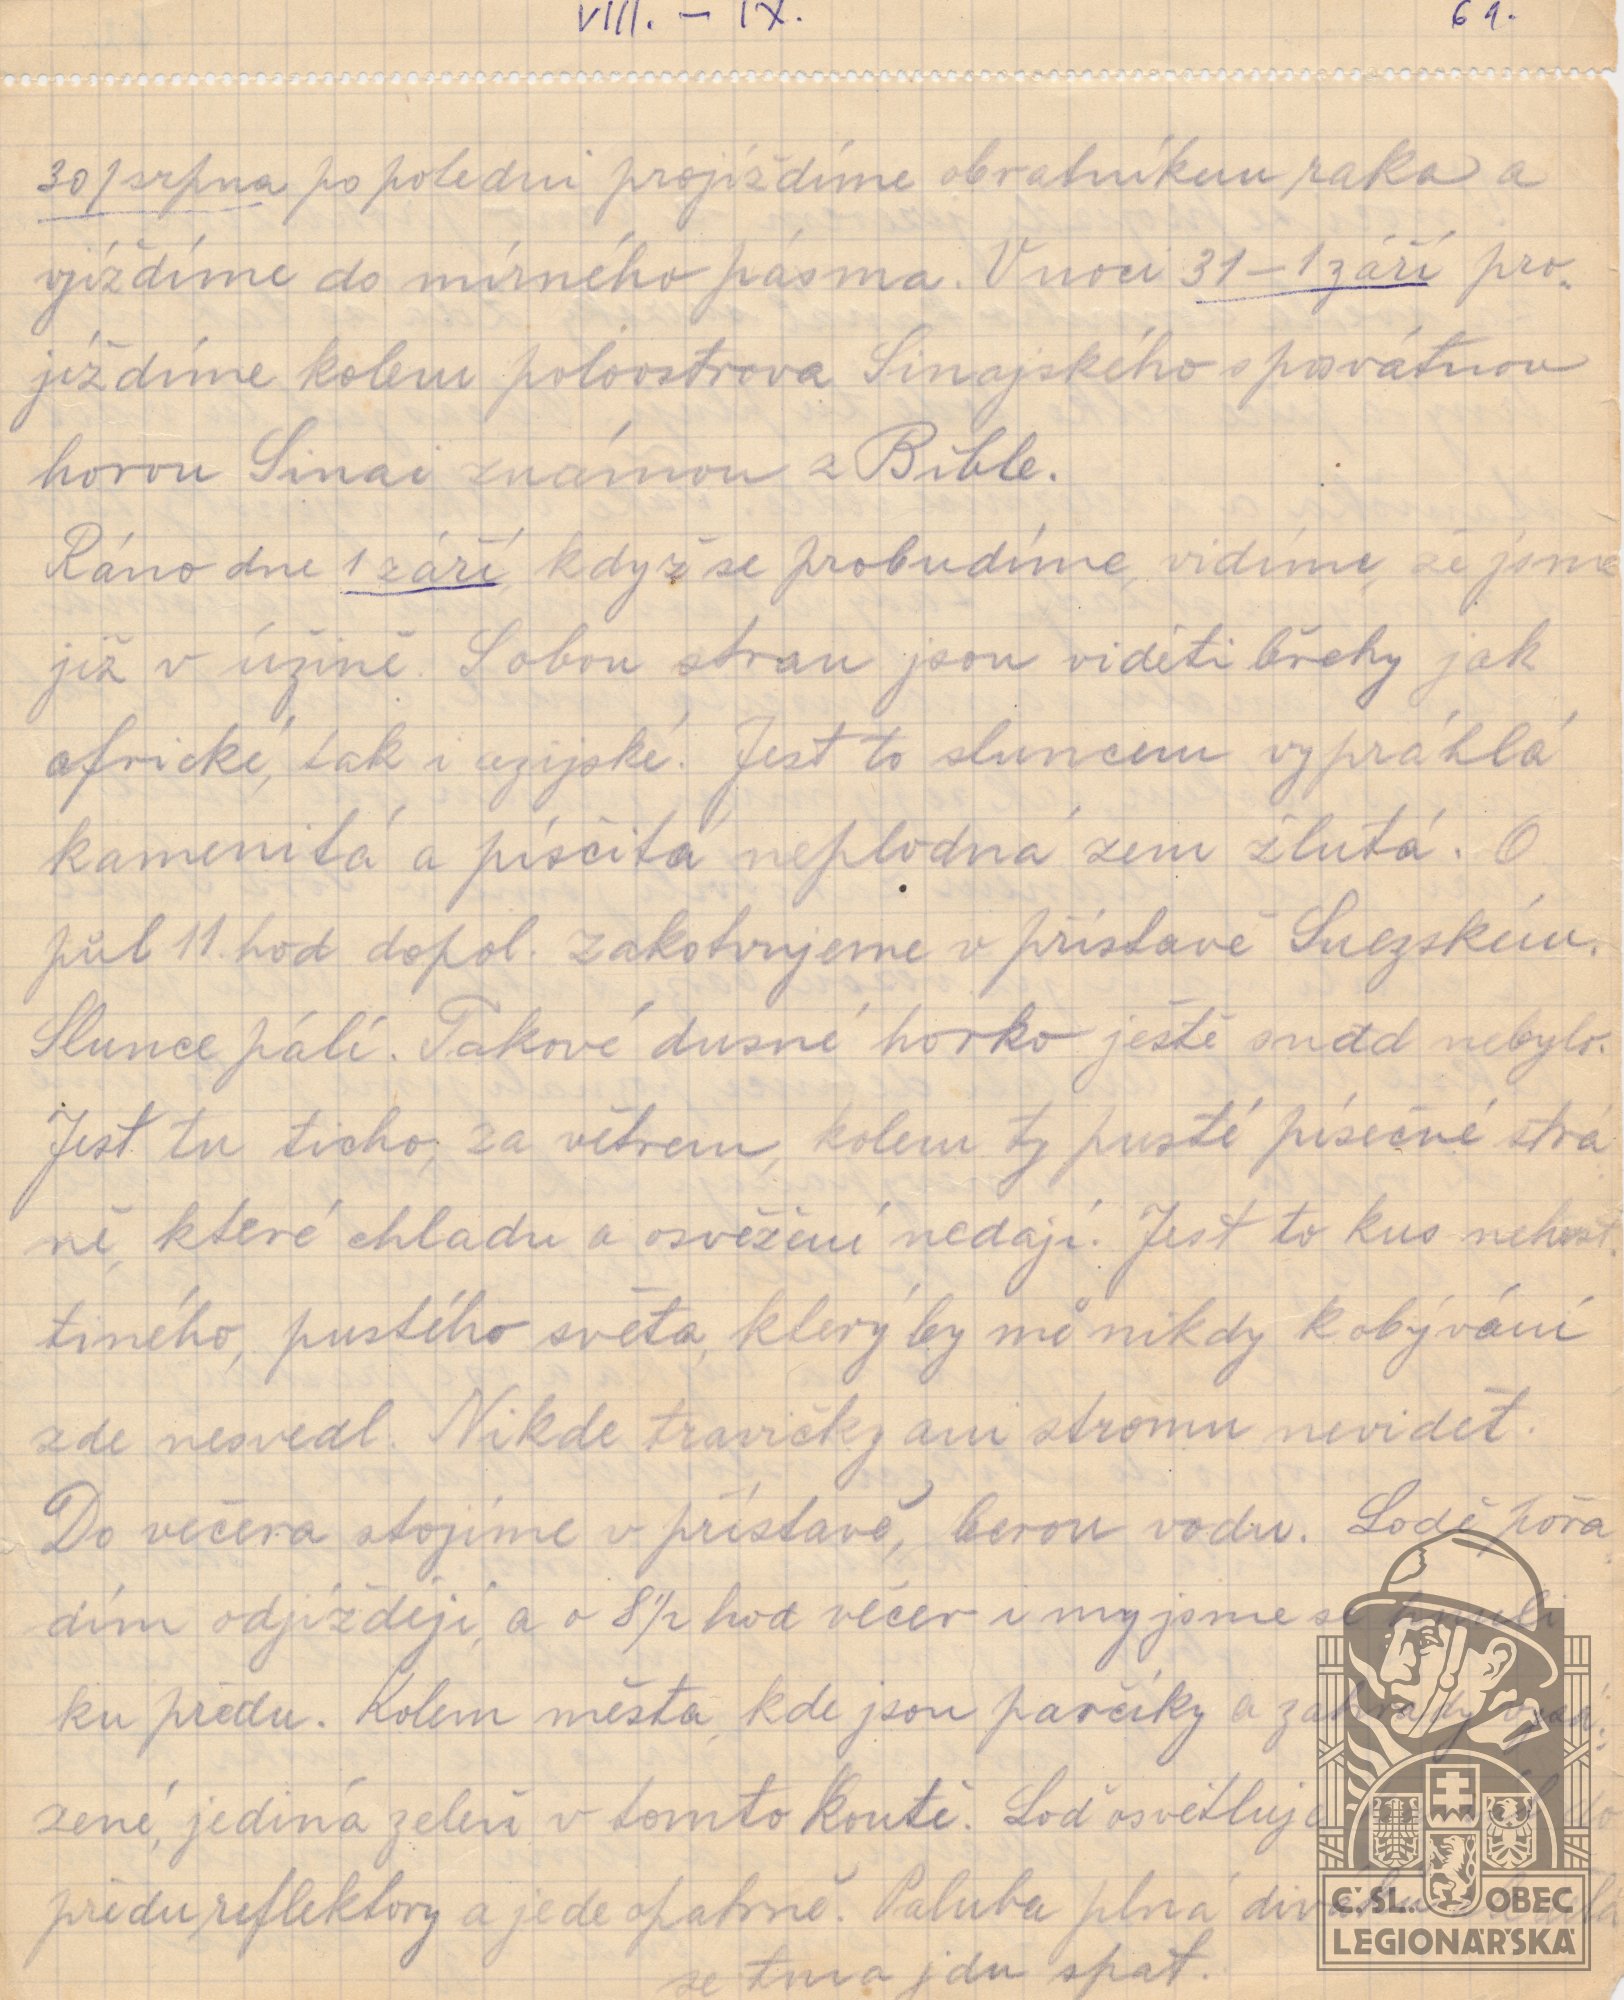 VIII. – IX. 69.
30/srpna po poledni projíždíme obratníkem raka a
vjíždíme do mírného pásma. V noci 31–1 září pro-
jíždíme kolem poloostrova Sinajského s posvátnou
horou Sinai známou z Bible.
Ráno dne 1 září, když se probudíme, vidíme, že jsme
již v úžině. S obou stran jsou viděti břehy jak
africké, tak i azijské. Jest to sluncem vyprahlá
kamenitá a písčitá neplodná zem žlutá. O
půl 11. hod dopol. zakotvujeme v přístavě Suezském.
Slunce pálí. Takové dusné horko ještě snad nebylo.
Jest tu ticho, za větrem, kolem ty pusté písečné strá
ně, které chladu a osvěžení nedají. Jest to kus nehost-
tiného, pustého světa, který by mě nikdy k obývání
zde nesvedl. Nikde travičky ani stromu nevidět.
Do večera stojíme v přístavě, berou vodu. Lodě pořa
dím odjíždějí, a o 8½ hod večer i my jsme se hnuli
ku předu. Kolem města, kde jsou parčíky a zahrady
zené, jediná zeleň v tomto koutě. Loď osvětluje do
předu reflektory a jede opatrně. Paluba plná
se tma jdu spat.
Č.SL. OBEC
LEGIONÁŘSKÁ